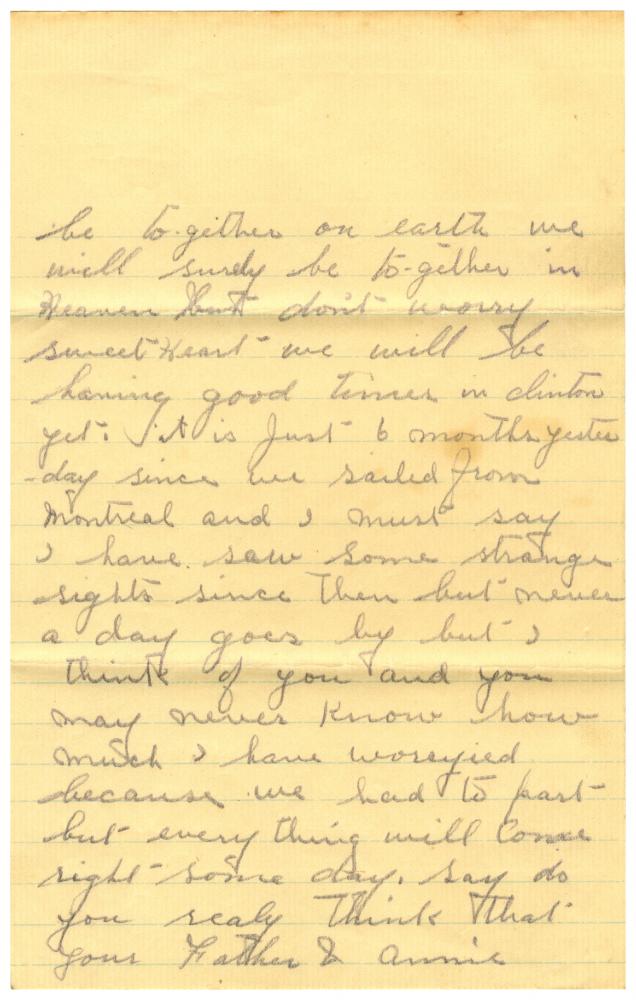 be to-gether on earth we
will surely be to-gether in
Heaven but don't worry
sweet Heart we will be
having good times in clinton
yet. it is Just 6 months yester
-day since we sailed from
Montreal and I must say
I have saw some strange
sights since then but never
a day goes by but I
think of you and you
may never Know how
much I have worryied
because we had to part
but every thing will Come
right some day. say do
you realy think that
your Father & annie